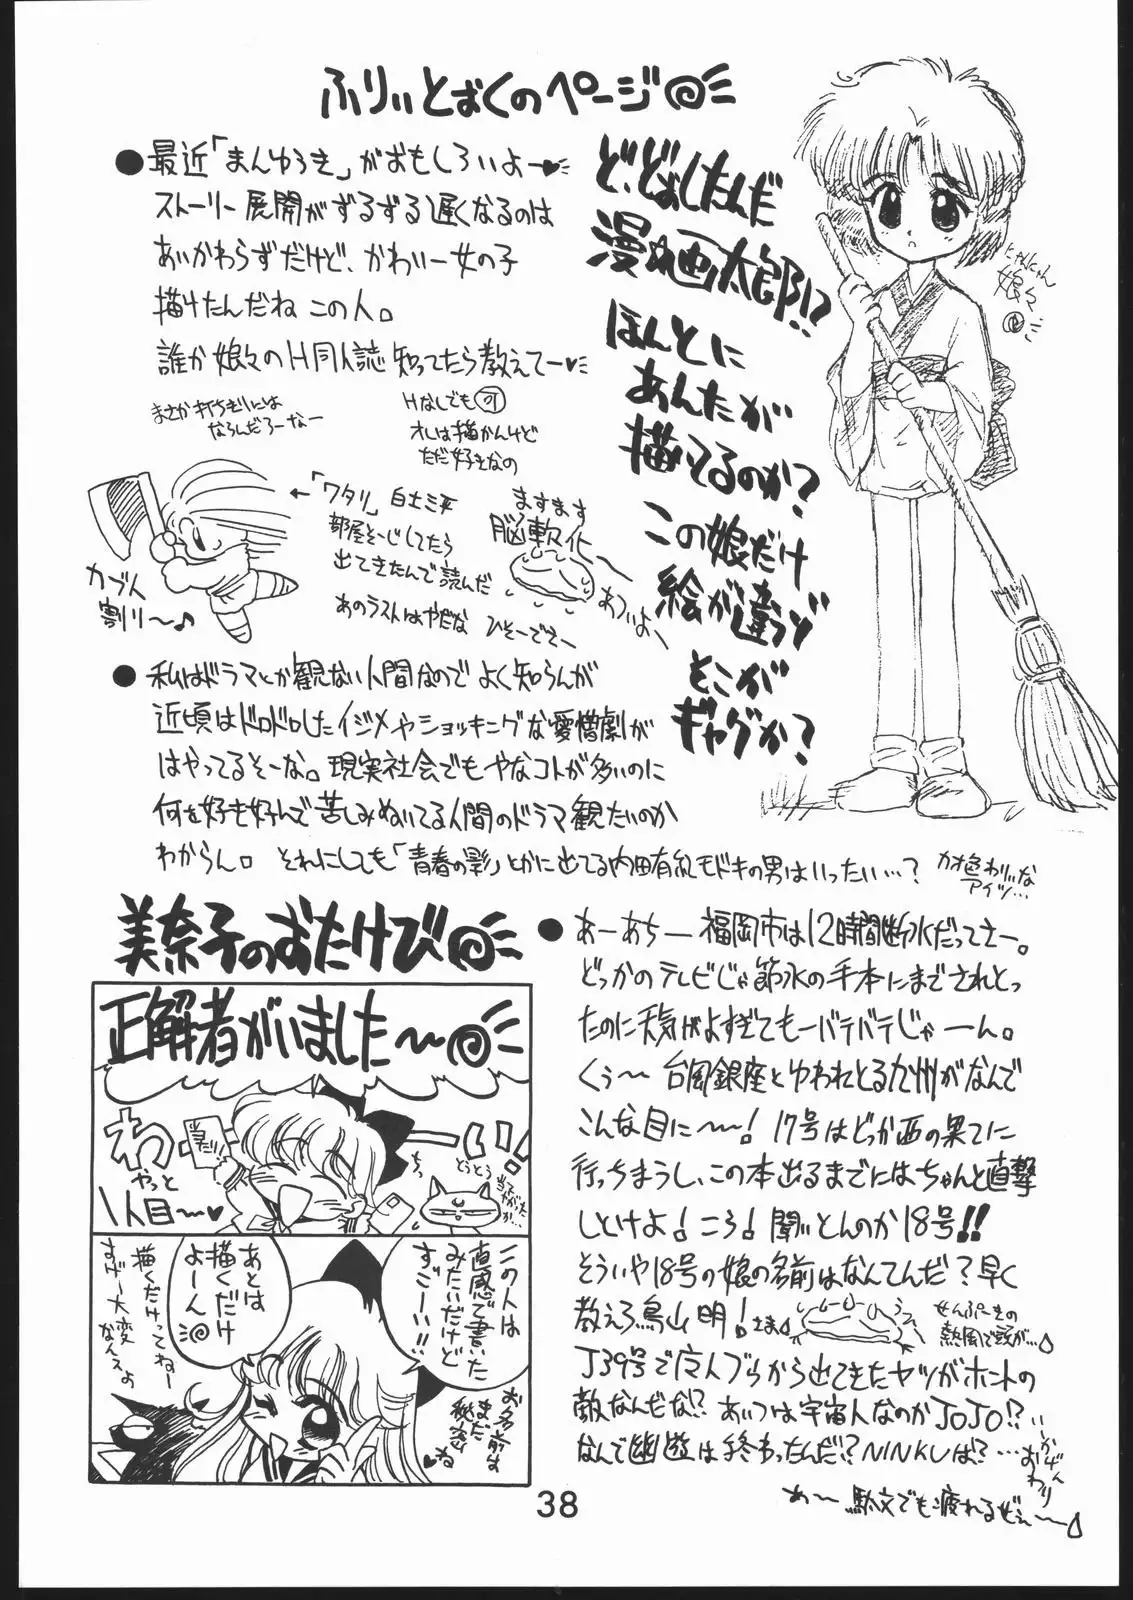 ふりぃとばくのページ
●最近「まんゆうき」がおもしろいよー
ストーリー展開がずるずる遅くなるのは
あいかわらずだけど、かわいー女の子
描けたんだね この人。
誰か娘々のH同人誌知ってたら教えてー
まさか打ちきりには
ならんだろーなー
Hなしでも可
オレは描かんけど
ただ好きなの
ど、どぉしたんだ
漫☆画太郎!?
ほんとに
あんたが
描いてるのか?
この娘だけ
絵が違うぞ
どこが
ギャグか?
にゃんにゃん
娘々
カブト
割り〜♪
←「ワタリ」白土三平
部屋そーじしてたら
出てきたんで読んだ
あのラストはやだな
ますます
脳軟化
あづいよ〜
●私はドラマとか観ない人間なので よく知らんが
近頃はドロドロしたイジメやショッキングな愛憎劇が
はやってるそーな。現実社会でもやなコトが多いのに
何を好き好んで苦しみぬいてる人間のドラマ観たいのか
わからん。 それにしても「青春の影」とかに出てる内田有紀モドキの男はいったい…?
カオ色わりぃな
アイツ…
美奈子のおたけび
正解者がいました〜
わーーい!
やっと
1人目〜
ちっ
とうとう
この人は
直感で書いた
みたいだけど
すごーい!!
お名前は
まだ
秘密
ね
あとは
描くだけ
よーん
描くだけってねー
すげー大変
なんえよ
●あーあちー 福岡市は12時間断水だってさー。
どっかのテレビじゃ節水の手本にまでされとっ
たのに天気がよすぎてもーバテバテじゃーん。
くぅ〜 台風銀座とゆわれとる九州がなんで
こんな目に〜! 17号はどっか西の果てに
行っちまうし、この本出るまでにはちゃんと直撃
しといけよ! ころ! 聞いとんのか18号!!
そういや18号の娘の名前はなんてんだ?早く
教えろ鳥山明!さま
せんぷーきの
熱風で頭が…
J39号で広人ブゥから出てきたヤツがホントの
敵なんだな!? あいつは宇宙人なのかJOJO!?
なんで幽遊は終わったんだ!?NINKUは?…
いかげん
おわり
あ〜 駄文でも疲れるぜぇ〜
38